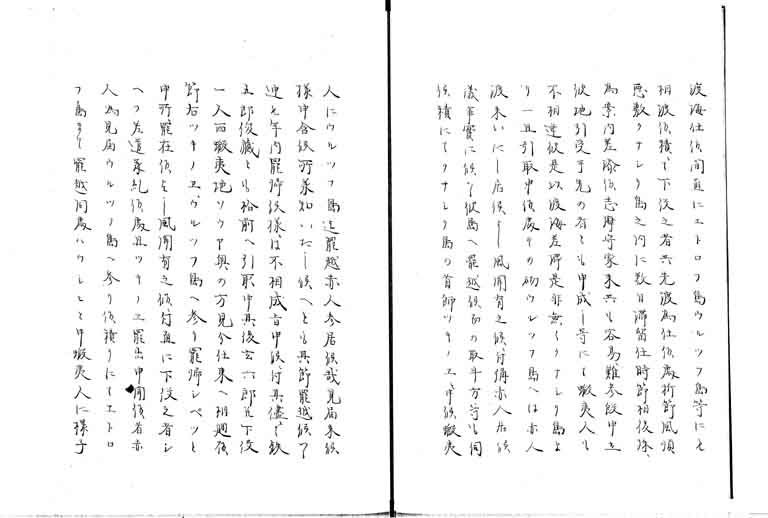 渡海仕候間直にエトロフ島ウルツフ島等にも
相渡候積ニて下役之者共先渡為仕候處折節風順
悪敷クナシリ島之内に数日滞留仕時節相後殊ニ
為案内差添候志摩守家来共も容易難参段申立
彼地引受予先の者とも申成し等にて蝦夷人も
不相進候似是以渡海差障是非無クナシリ島よ
り一旦引取申候處其の砌ウルツフ島へは赤人
渡来いたし居候よし風聞有之候付偖赤人居候
儀事実に候ハ彼島へ罷越候節の取斗方等も伺
候積にてクナシリ島の首師ツキノエと申候蝦夷
人にウルツフ島迄罷越赤人参居候哉見届来候
様申含候所承知いたし候へとも其節罷越候ハ
逆も年内罷帰候様は不相成旨申候付其儘ニて鉄
五郎俊蔵とも松前へ引取申其後玄六郎並下役
一人西蝦夷地ソウヤ奥の方見分仕東へ相廻候
節右ツキノエウルツフ島へ参り罷帰シベツと
申所罷在候よし風聞有之候付直に下役之者シ
ベツ差遣承糺候處且ツキノエ罷出申聞候者赤
人為見届ウルツフ島へ参り候積りにてエトロ
フ島まて罷越同處ハウシヒと申蝦夷人に様子